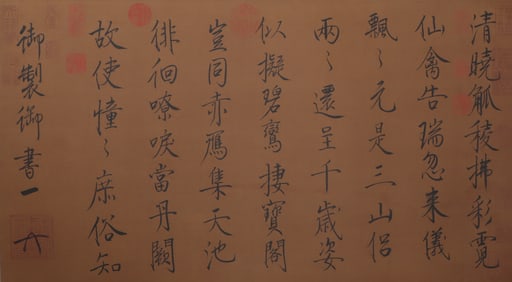 清曉觚稜拂彩霓
仙禽告瑞忽來儀
飄〻元是三山侶
兩〻還呈千歲姿
似擬碧鸞棲寶閣
豈同赤鴈集天池
徘徊嘹唳當丹闕
故使憧〻庶俗知
御製御書